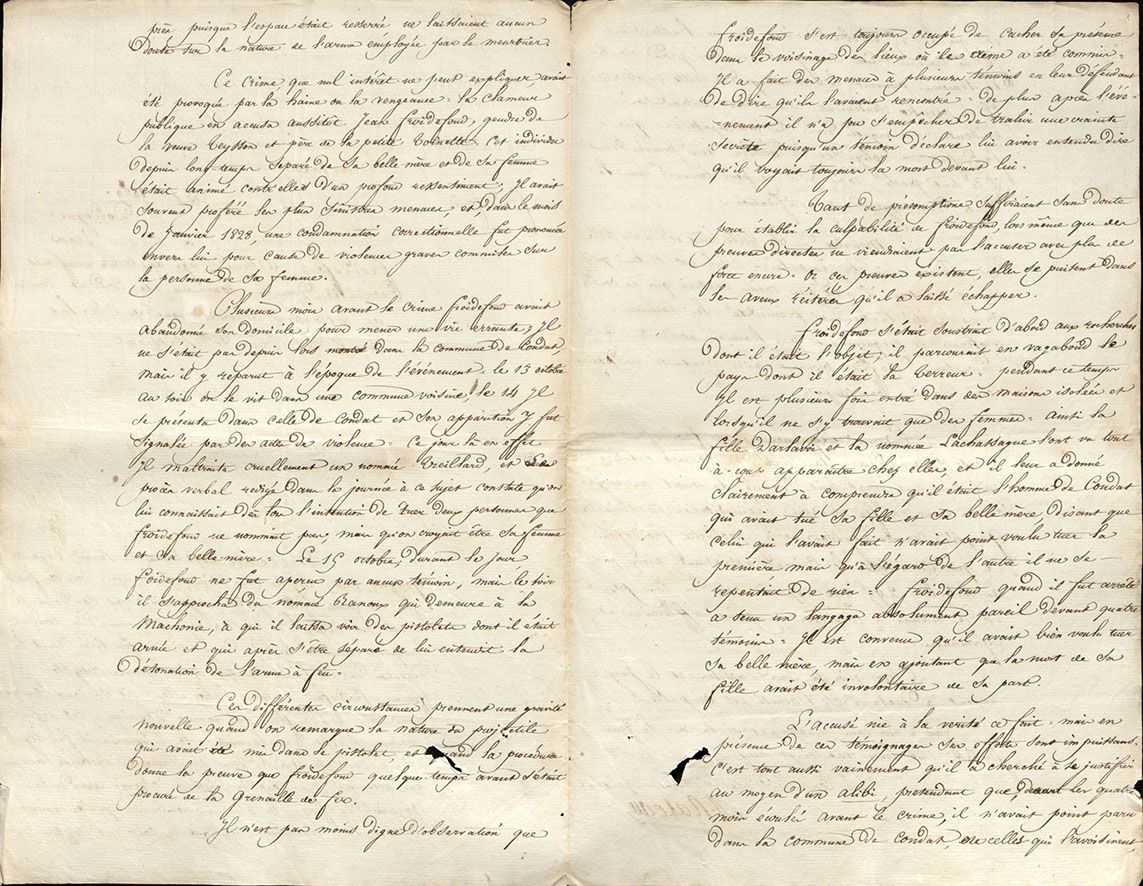 près puisque l'espace était resserré ne laissaient aucun
doute sur la nature de l'arme employée par le meurtrier.
Ce crime que nul intérêt ne peut expliquer, avait
été provoqué par la haine ou la vengeance = la clameur
publique en accusa aussitôt Jean froidefond, gendre de
la veuve Teysson et père de la petite Toinette; cet individu
depuis long temps séparé de sa belle mère et de sa femme
était animé contr'elles d'un profond ressentiment; Il avait
souvent proféré les plus sinistres menaces, et dans le mois
de Janvier 1828, une condamnation correctionnelle fut prononcée
envers lui pour cause de violences graves commises sur
la personne de sa femme.
Plusieurs mois avant le crime froidefond avait
abandonné son domicile pour mener une vie errante; Il
ne s'était pas depuis lors montré dans la commune de Condat,
mais il y reparut à l'époque de l'événement. le 13 octobre
au soir on le vit dans une commune voisine, le 14 Il
se présenta dans celle de Condat et son apparition y fut
signalée par des actes de violence = Ce jour là en effet
Il maltraita cruellement un nommé Treillard, et
procès verbal rédigé dans la journée à ce sujet constate qu'on
lui connaissait dès lors l'intention de tuer deux personnes que
froidefond ne nommait pas, mais qu'on croyait être sa femme
et sa belle mère = Le 15 octobre, durant le jour
froidefond ne fut aperçu par aucun témoin, mais le soir
il s'approcha du nommé Ranoux qui demeure à la
Machonie, à qui il laissa voir des pistolets dont il était
armé et qui après s'être séparé de lui entendit la
détonation de l'arme à feu =
Ces différentes circonstances prennent une gravité
nouvelle quand on remarque la nature du projectile
qui avait été mis dans le pistolet, et quand la procédure
donne la preuve que froidefond quelque temps avant s'était
procuré de la Grenaille de fer.
Il n'est pas moins digne d'observation que
froidefond s'est toujours occupé de cacher sa présence
dans le voisinage des lieux où le crime a été commis =
Il a fait des menaces à plusieurs témoins en leur défendant
de dire qu'ils l'avaient rencontré = de plus après l'évé-
nement il n'a pu s'empêcher de trahir une crainte
secrète puisqu'un témoin déclare lui avoir entendu dire
qu'il voyait toujours la mort devant lui.
Tant de présomptions suffiraient sans doute
pour établir la culpabilité de froidefond, lors même que des
preuves directes ne viendraient pas l'accuser avec plus de
force encore. Or ces preuves existent, elles se puisent dans
les aveux réitérés qu'il a laissé échapper.
froidefond s'était soustrait d'abord aux recherches
dont il était l'objet; il parcourait en vagabond le
pays dont il était la terreur = pendant ce temps
Il est plusieurs fois entré dans des maisons isolées et
lorsqu'il ne s'y trouvait que des femmes = ainsi la
fille Dartavoir et la nommée Lachassagne l'ont vu tout
à-coup apparaître chez elles, et il leur a donné
clairement à comprendre qu'il était l'homme de Condat
qui avait tué sa fille et sa belle mère disant que
celui qui l'avait fait n'avait point voulu tuer la
première mais qu'à l'égard de l'autre il ne se
repentait de rien = froidefond quand il fut arrêté
a tenu un langage absolument pareil devant quatre
témoins = Il est convenu qu'il avait bien voulu tuer
sa belle mère, mais en ajoutant que la mort de sa
fille avait été involontaire de sa part.
L'accusé nie à la vérité ce fait, mais en
présence de ces témoignages ses efforts sont impuissans,
c'est tout aussi vainement qu'il a cherché à se justifier
au moyen d'un alibi, prétendant que, durant les quatre
mois écoulés avant le crime, il n'avait point paru
dans la commune de Condat, ou celles qui l'avoisinent,